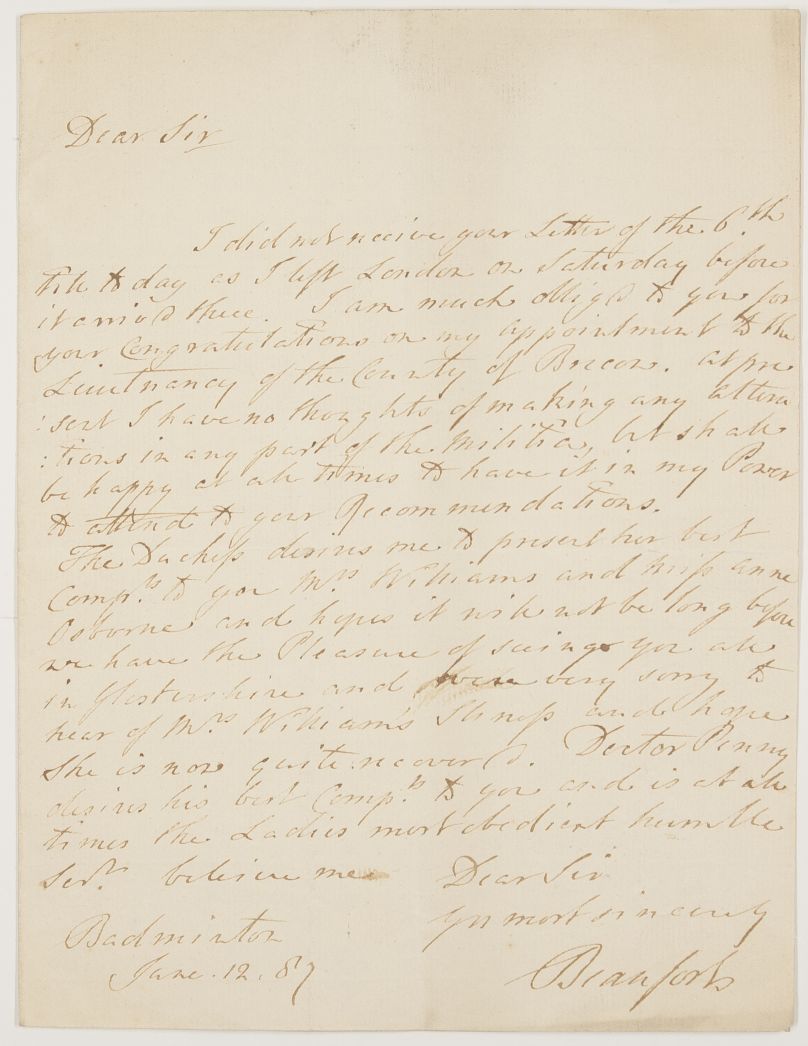 Dear Sir
I did not receive your Letter of the 6.th
till to day as I left London on Saturday before
it arriv'd there. I am much oblig'd to you for
your Congratulations on my appointment to the
Lieutnancy of the County of Brecon. at pre
:sent I have no thoughts of making any altera
:tions in any part of the Militia, but shall
be happy at all times to have it in my Power
to attend to your Recommendations.
The Duchess desires me to present her best
Comp.ts to you Mrs Williams and Miss Anne
Osborne and hopes it will not be long before
we have the Pleasure of seeing you all
in Glostershire and were very sorry to
hear of Mrs William's Illness and hope
She is now quite recover'd. Doctor Penny
desires his best Comp.ts to you and is at all
times the Ladies most obedient humble
Serv.t believe me
Dear Sir
Yrs most sincerely
Beaufort
Badminton
June. 12. 87